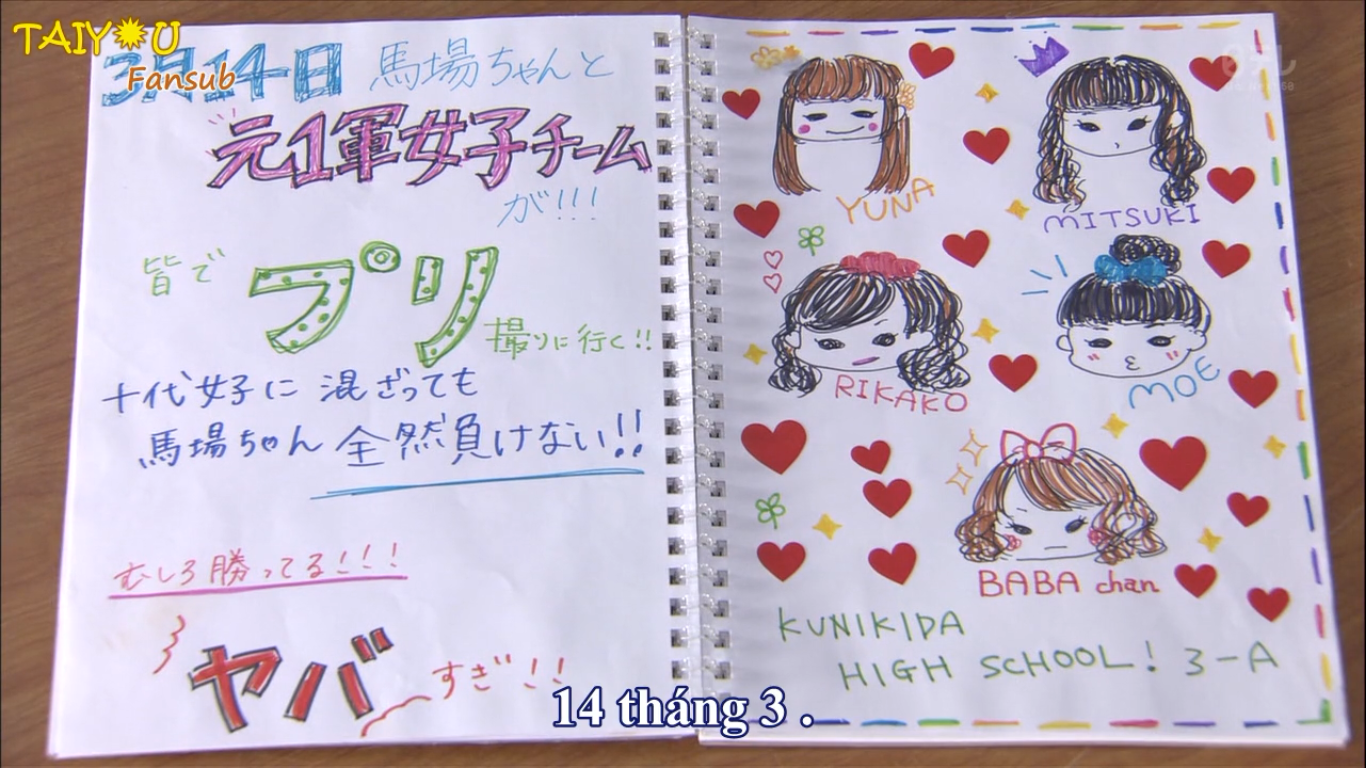 TAIYOU
Fansub
日テレ
3月14日 馬場ちゃんと
元1軍女子チーム
が!!!
皆で
プリ
撮りに行く!!
十代女子に 混ざっても
馬場ちゃん 全然負けない!!
むしろ勝ってる!!!
ヤバ
すぎ!!
YUNA
MITSUKI
RIKAKO
MOE
BABA chan
KUNIKIDA
HIGH SCHOOL! 3-A
14 tháng 3 .